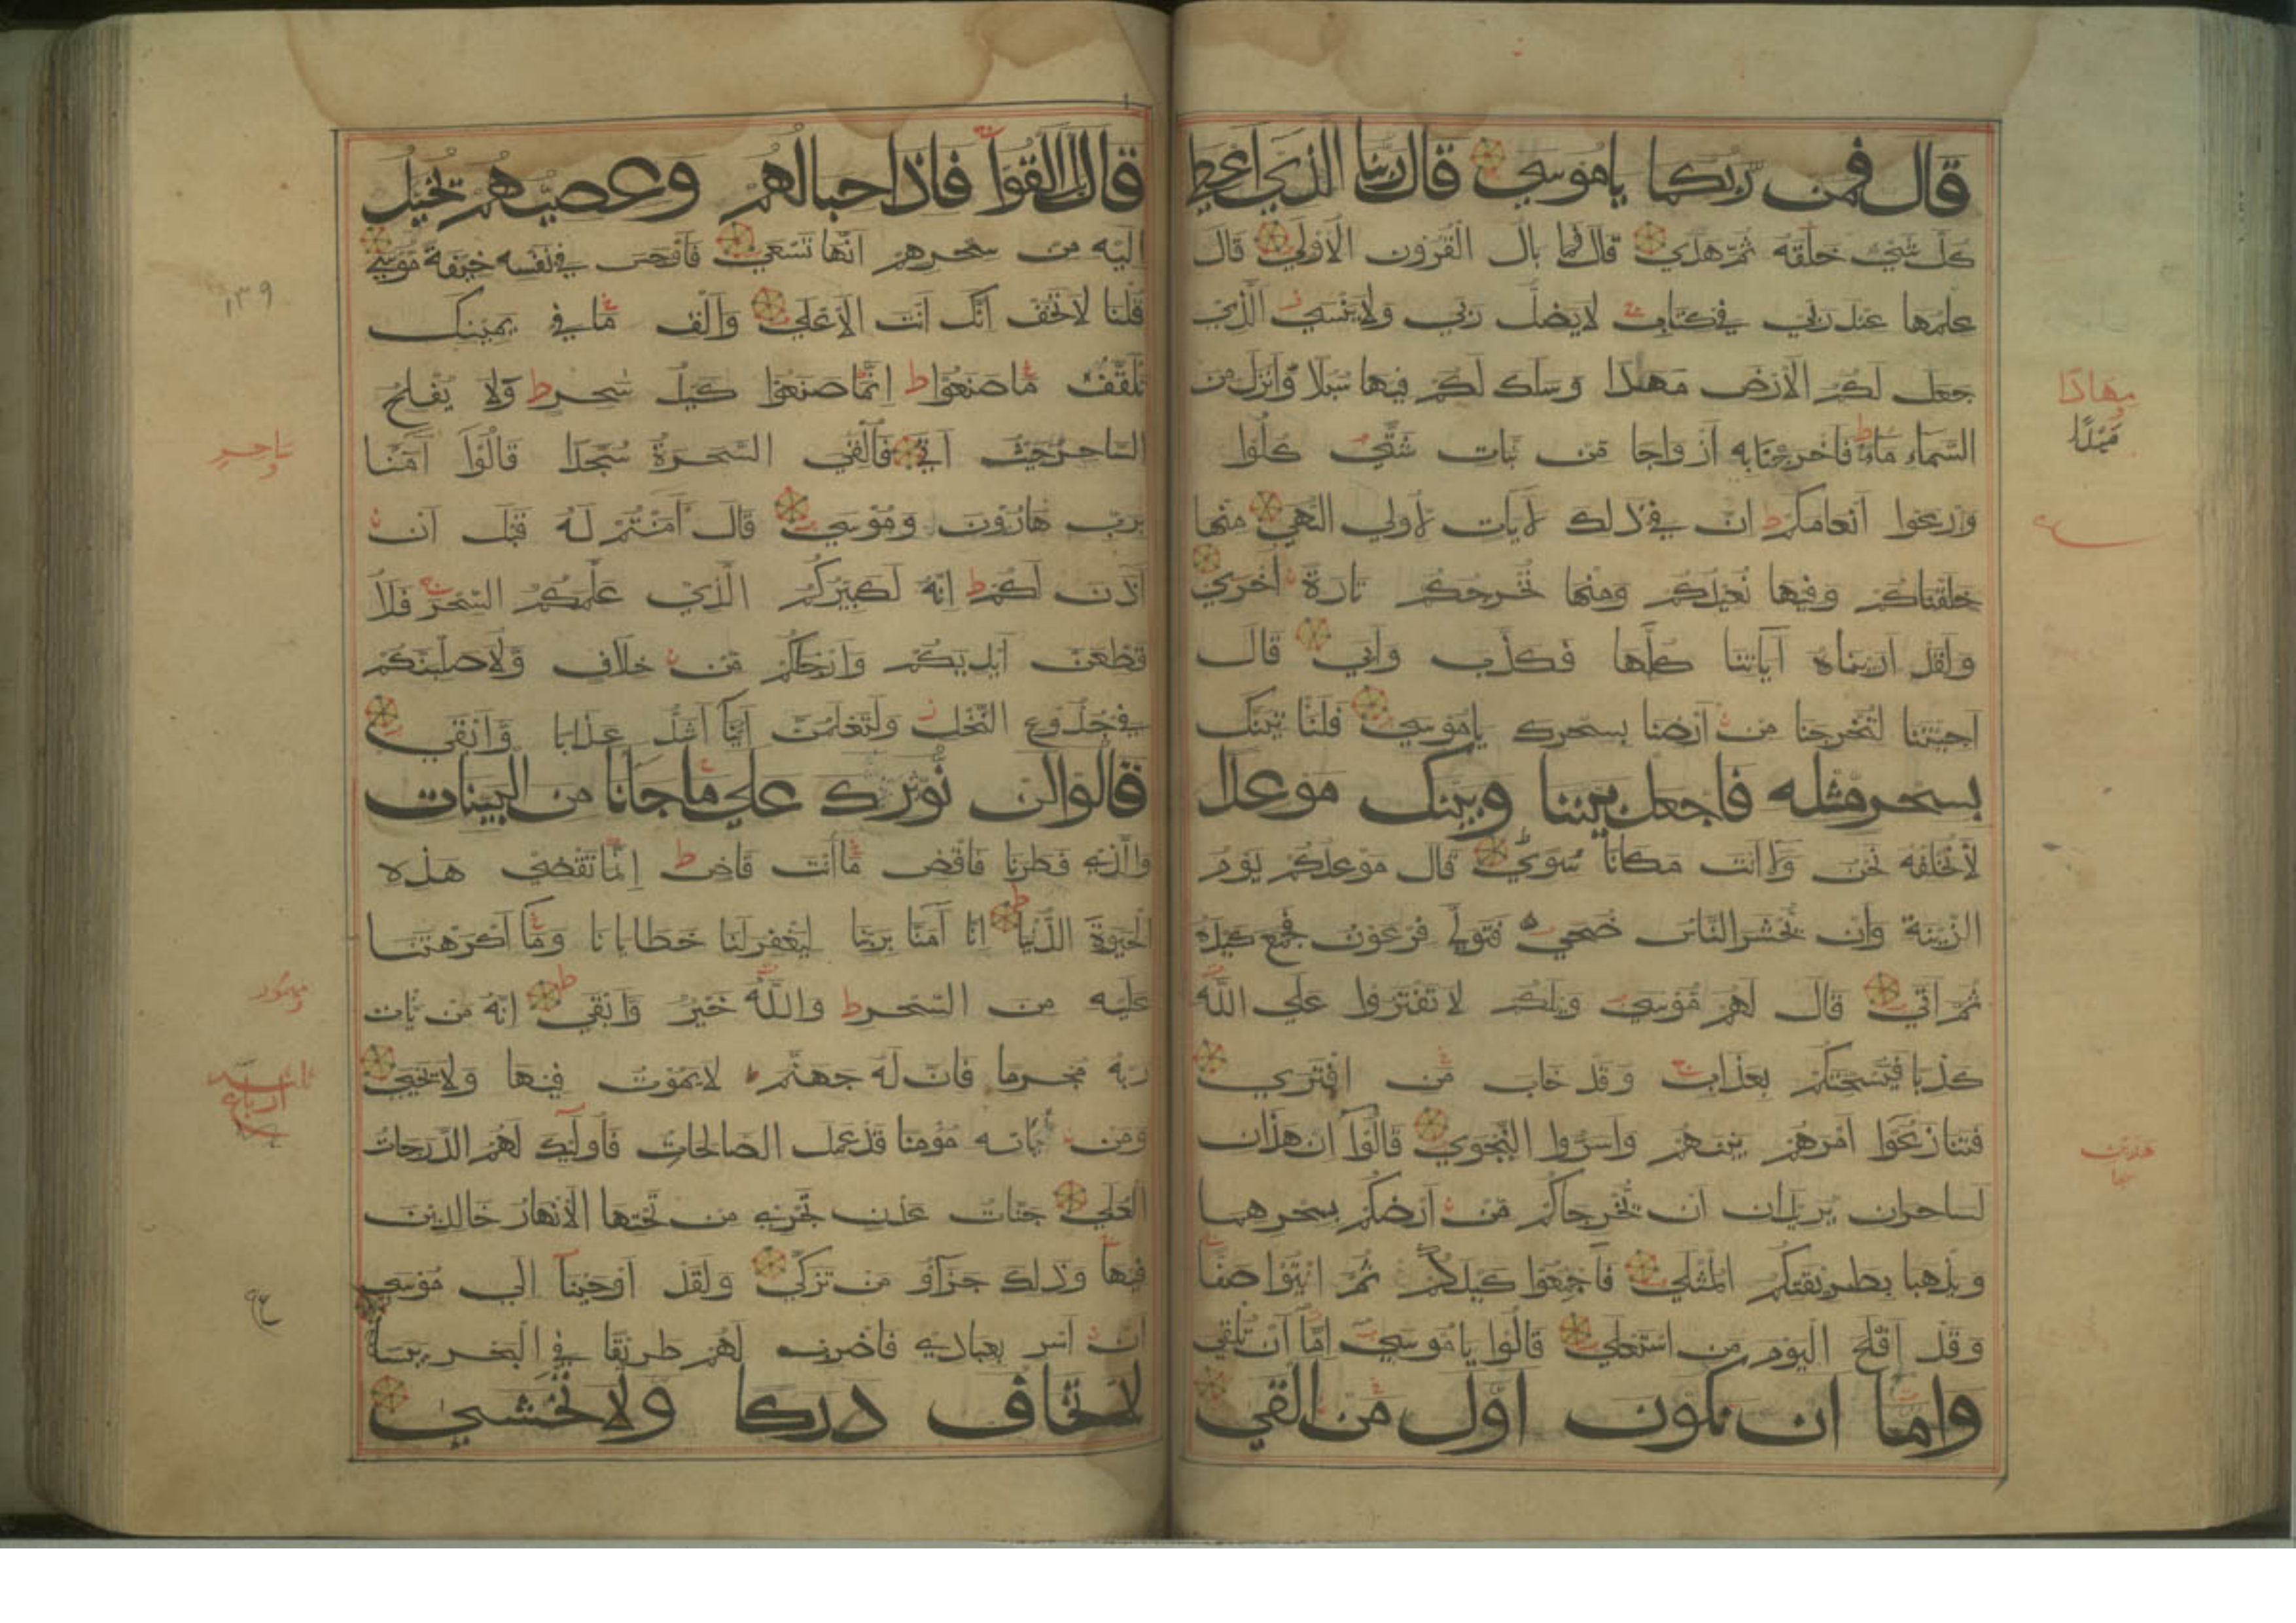 قال فمن ربكما ياموسي قال ربنا الذي اعطي
كل شيء خلقه ثم هدي قال فما بال القرون الاولي قال
علمها عند ربي في كتاب لايضل ربي ولاينسي الذي
جعل لكم الارض مهدا وسلك لكم فيها سبلا وانزل من
السماء ماء فاخرجنا به ازواجا من نبات شتي كلوا
وارعوا انعامكم ان في ذلك لايات لاولي النهي منها
خلقناكم وفيها نعيدكم ومنها نخرجكم تارة اخري
ولقد اريناه آياتنا كلها فكذب وابي قال
اجئتنا لتخرجنا من ارضنا بسحرك ياموسي فلناتينك
بسحر مثله فاجعل بيننا وبينك موعدا
لانخلفه نحن ولاانت مكانا سوي قال موعدكم يوم
الزينة وان يحشر الناس ضحي فتولي فرعون فجمع كيده
ثم اتي قال لهم موسي ويلكم لاتفتروا علي الله
كذبا فيسحتكم بعذاب وقد خاب من افتري
فتنازعوا امرهم بينهم واسروا النجوي قالوا ان هذان
لساحران يريدان ان يخرجاكم من ارضكم بسحرهما
ويذهبا بطريقتكم المثلي فاجمعوا كيدكم ثم ائتوا صفا
وقد افلح اليوم من استعلي قالوا ياموسي اما ان تلقي
واما ان نكون اول من القي
مهادا
مهدا
هذين
قال بل القوا فاذا حبالهم وعصيهم يخيل
اليه من سحرهم انها تسعي فاوجس في نفسه خيفة موسي
قلنا لاتخف انك انت الاعلي والق ما في يمينك
تلقف ما صنعوا ط انما صنعوا كيد سحر ط ولا يفلح
الساحر حيث اتي فالقي السحرة سجدا قالوا آمنا
برب هارون وموسي قال آمنتم له قبل ان
آذن لكم ط انه لكبيركم الذي علمكم السحر فلا
قطعن ايديكم وارجلكم من خلاف ولاصلبنكم
في جذوع النخل ولتعلمن اينا اشد عذابا وابقي
قالوا لن نؤثرك علي ما جانا من البينات
والذي فطرنا فاقض ما انت قاض ط انما تقضي هذه
الحيوة الدنيا ط انا آمنا بربنا ليغفر لنا خطايانا وما اكرهتنا
عليه من السحر ط والله خير وابقي ط انه من يات
ربه مجرما فان له جهنم ط لايموت فيها ولايحيي
ومن ياته مؤمنا قد عمل الصالحات فاولئك لهم الدرجات
العلي جنات عدن تجري من تحتها الانهار خالدين
فيها وذلك جزاؤ من تزكي ولقد اوحينا الي موسي
ان اسر بعبادي فاضرب لهم طريقا في البحر يبسا
لاتخاف دركا ولاتخشي
١٣٩
ساحر